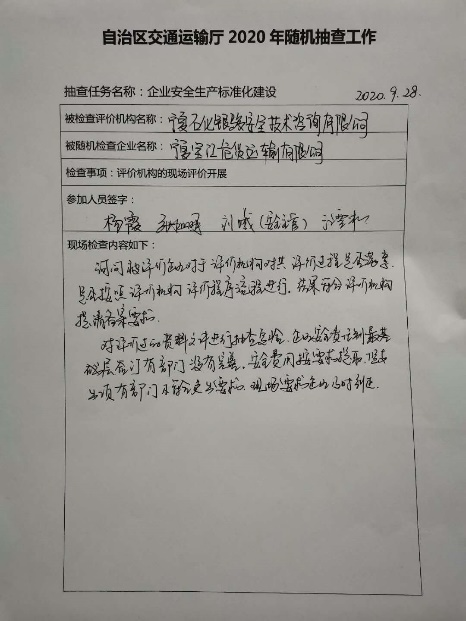 自治区交通运输厅 2020 年随机抽查工作
抽查任务名称：企业安全生产标准化建设 2020.9.28.
被检查评价机构名称：宁夏石化银骏安全技术咨询有限公司
被随机检查企业名称：宁夏宝江危货运输有限公司
检查事项：评价机构的现场评价开展
参加人员签字：
杨霞 刘 (安全)
现场检查内容如下：
询问被评价企业对于评价机构对其评价过程是否落实
是否按照评价机构评价程序流程进行，结果部分评价机构
要求。
对评价过的资料文件进行抽查查验，企业安全责任制最基
层签订有部门没有，安全费用按要求提取，
有部门要求。现场要求企业及时